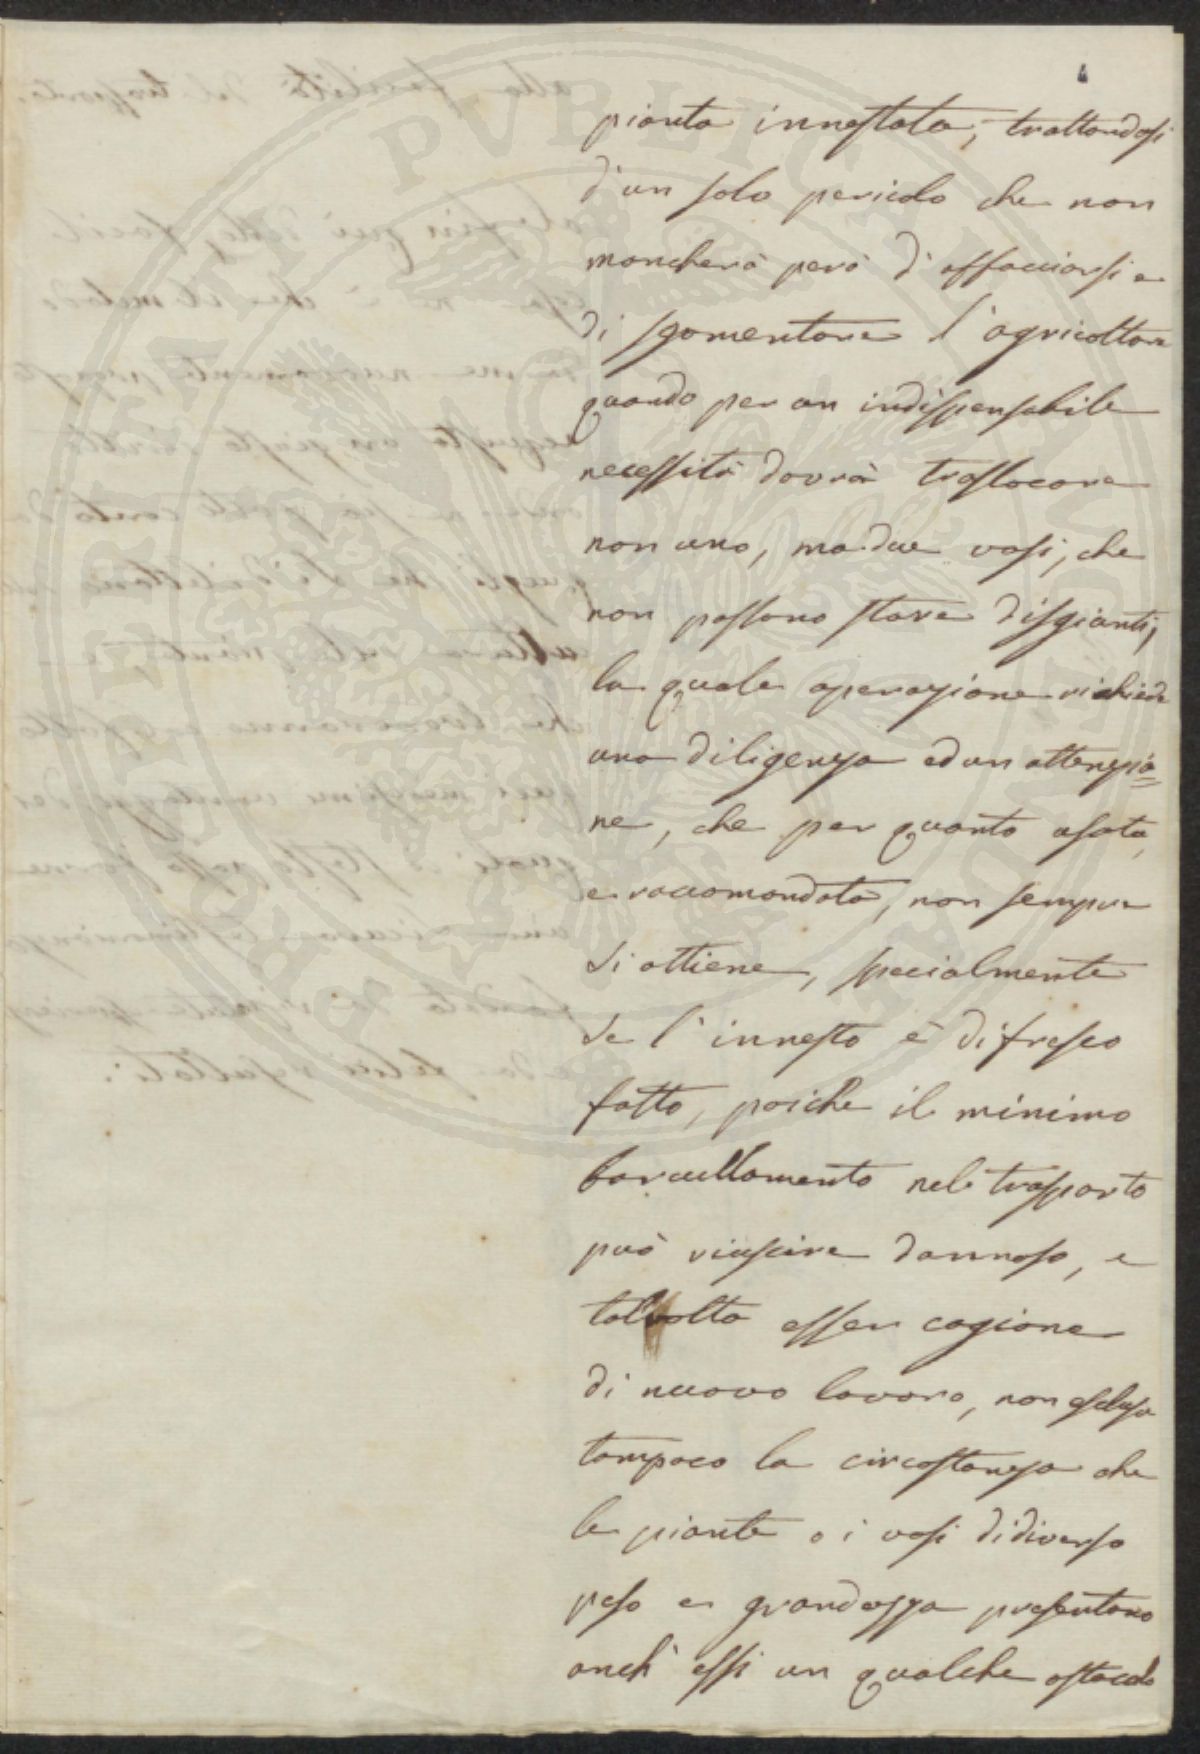 pianta innestata, trattandosi
d'un solo pericolo che non
mancherà però d'affacciarsi e
di sgomentare l'agricoltore
quando per un indispensabile
necessità dovrà traslocare
non uno, ma due vasi, che
non possono stare disgianti,
la quale operazione richiede
una diligenza ed un attenzio=
ne, che per quanto usata,
e raccomandata, non sempre
si ottiene, specialmente
se l'innesto è di fresco
fatto, poiche il minimo
barcullamento nel trasporto
può riuscire dannoso, e
talvolta esser cagione
di nuovo lavoro, non esclusa
tampoco la circostanza che
le piante o i vasi di diverso
peso e grandezza presentano
anch'essi un qualche ostacolo